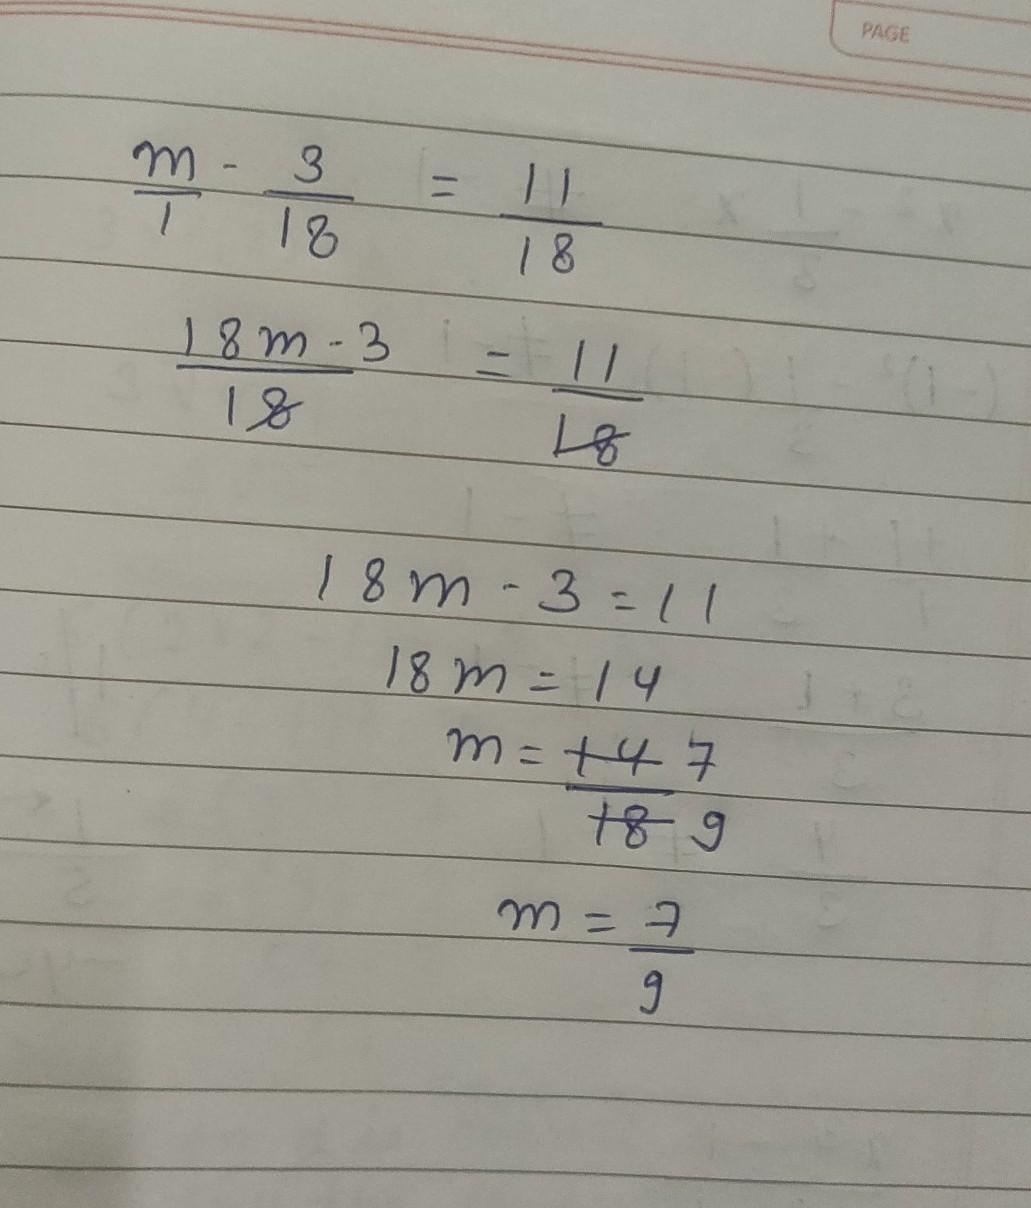 PAGE
m/1 - 3/18 = 11/18
18m - 3/18 = 11/18
18m - 3 = 11
18m = 14
m = 14 7/18 9
m = 7/9